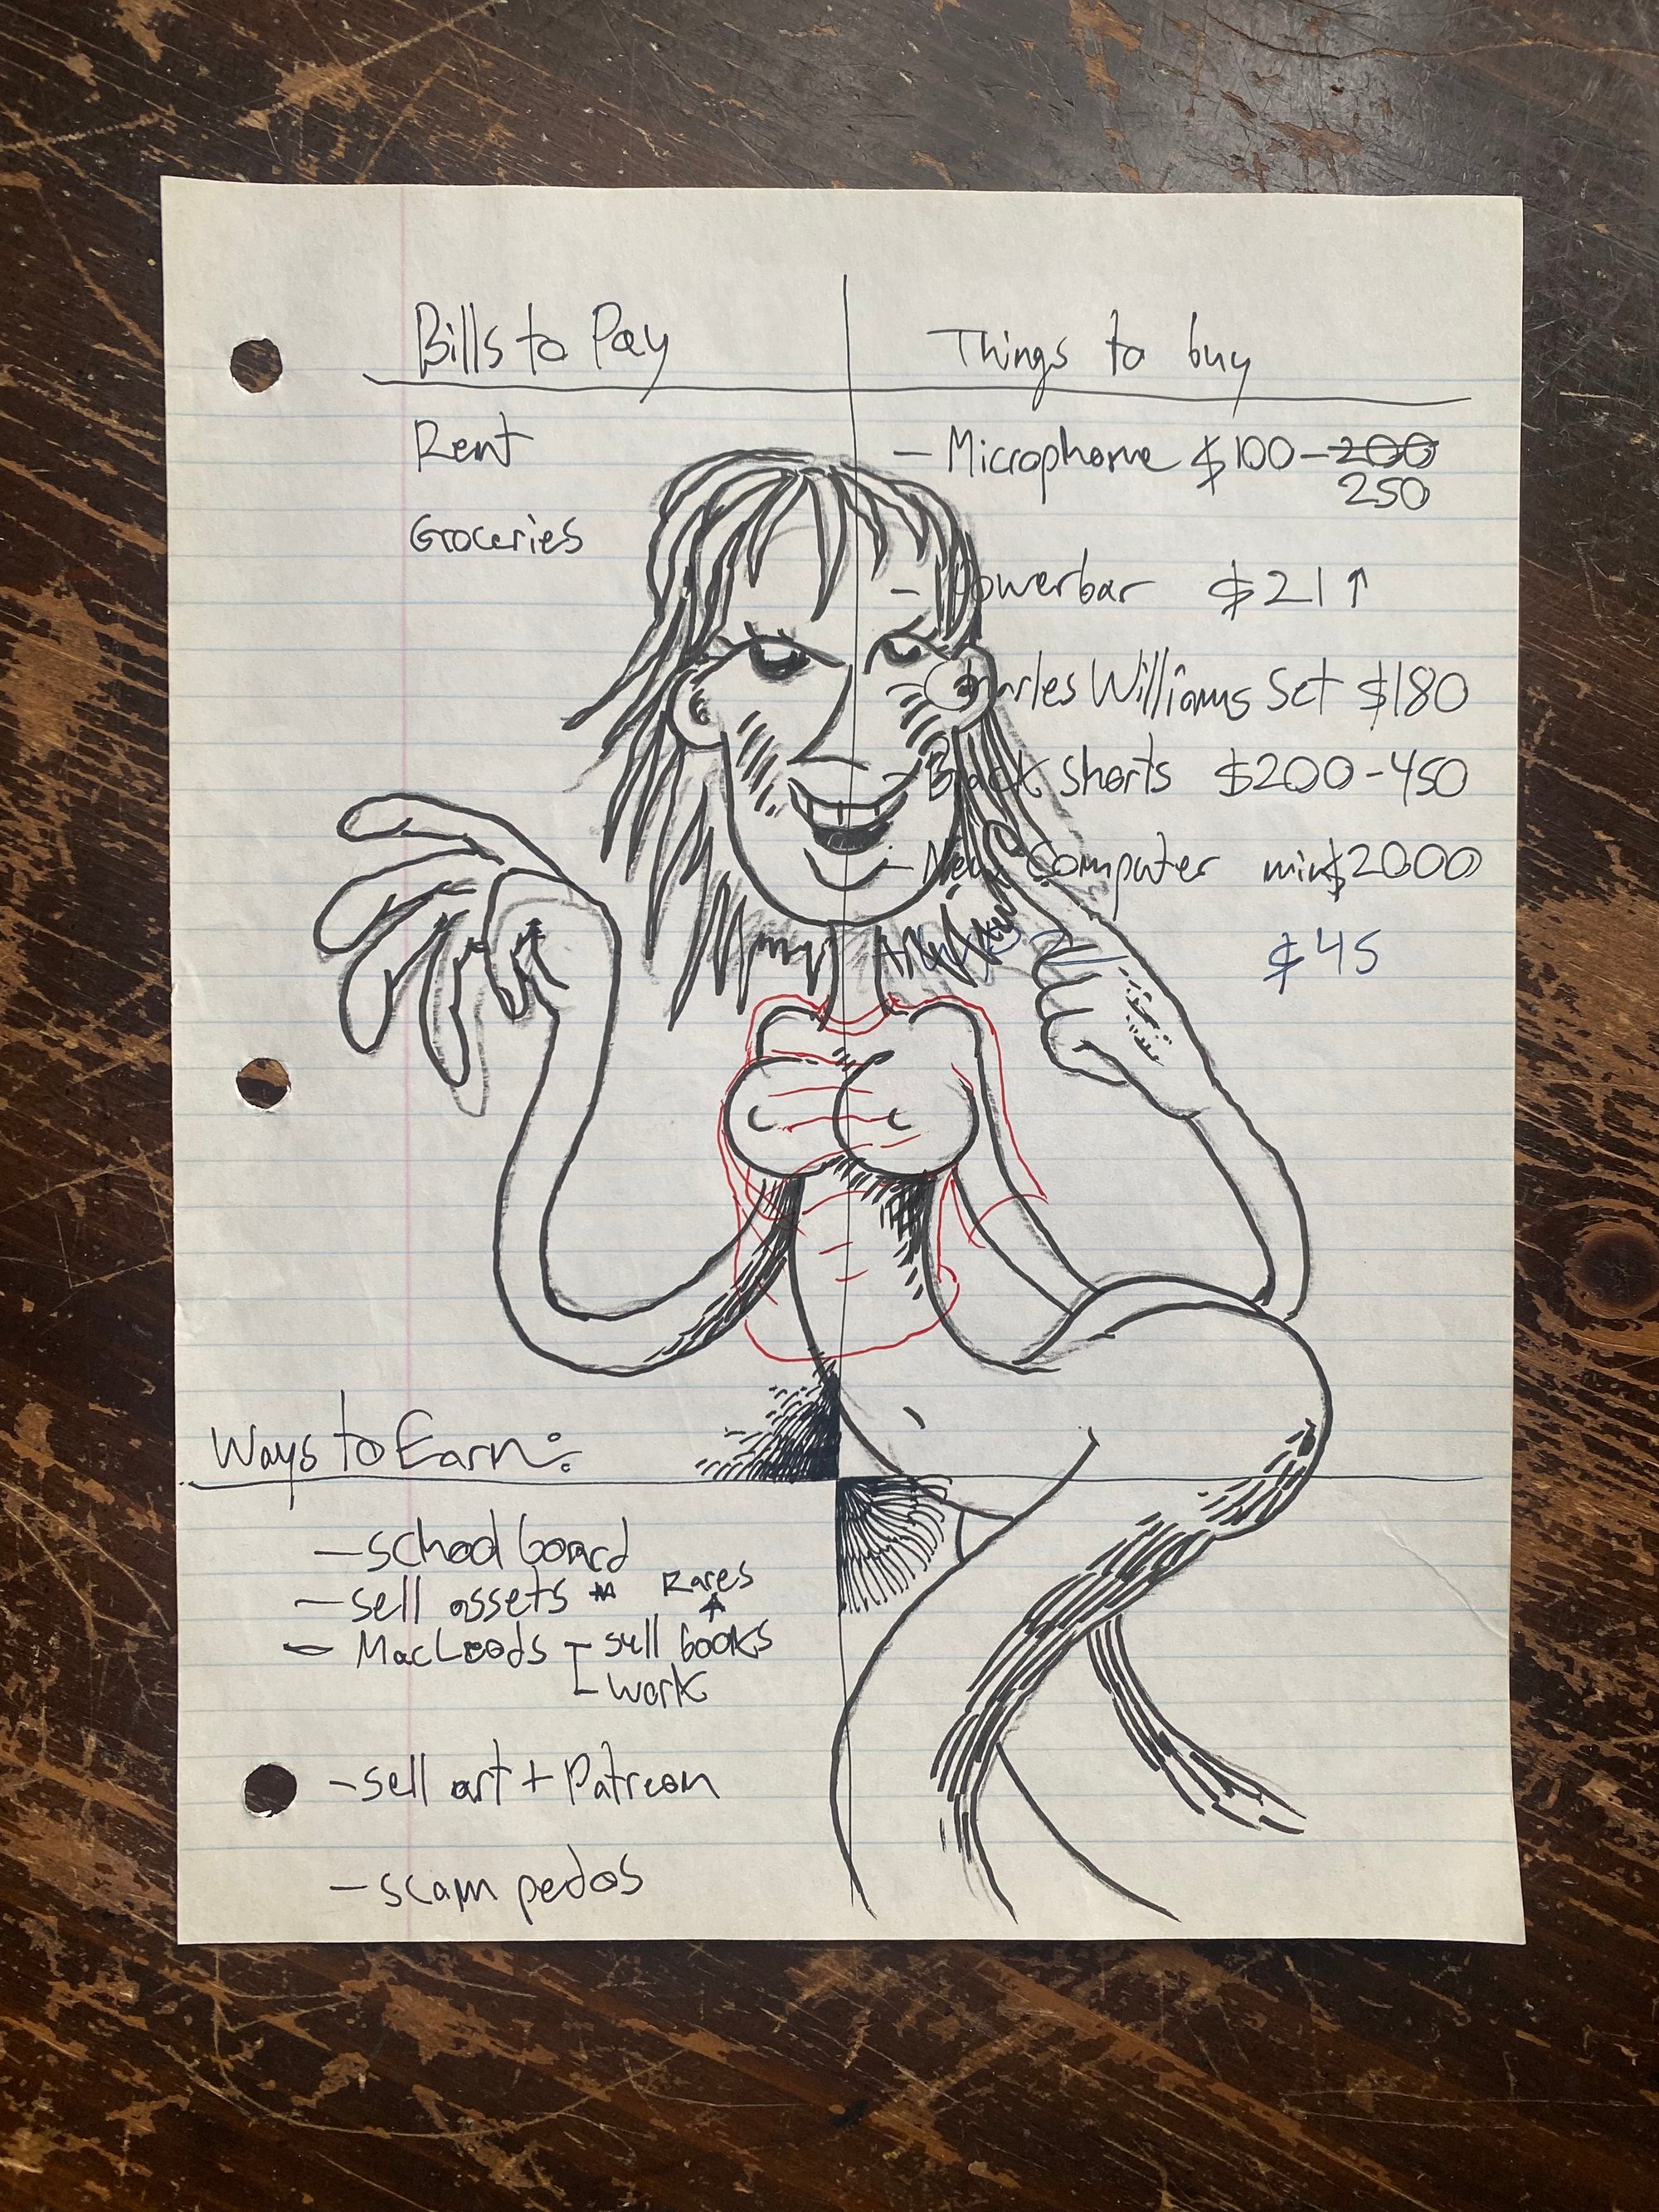 Bills to Pay
Rent
Groceries
Things to buy
- Microphone $100-200
250
- Powerbar $21↑
Charles Williams Set $180
- Black Shorts $200-450
- New Computer min$2000
$45
Ways to Earn:
- school board
- sell assets
Rares
- MacLeods - sell books
- work
- sell art + Patreon
- scam pedos